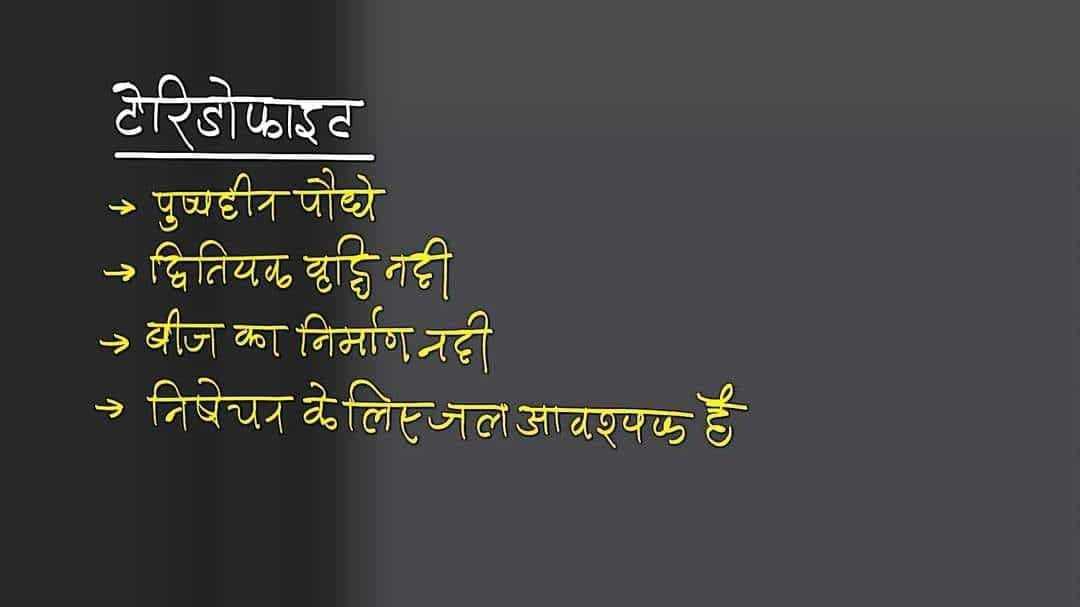 टेरिडोफाइट
→ पुष्पहीन पौधे
→ द्वितियक वृद्धि नही
→ बीज का निर्माण नही
→ निषेचन के लिए जल आवश्यक हैं